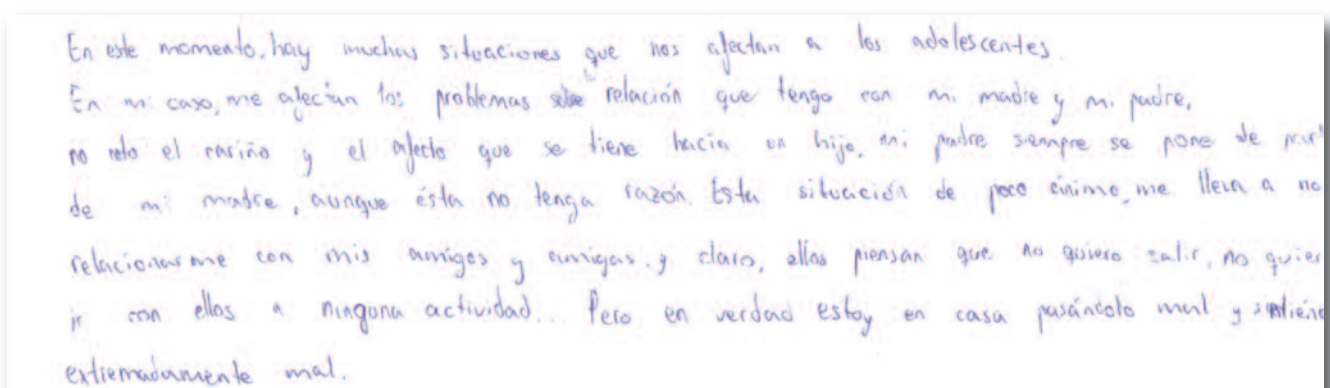 En este momento, hay muchas situaciones que nos afectan a los adolescentes.
En mi caso, me afectan los problemas relación que tengo con mi madre y mi padre,
no noto el cariño y el afecto que se tiene hacia un hijo, mi padre siempre se pone de part
de mi madre, aunque ésta no tenga razón. Esta situación de poco ánimo, me lleva a no
relacionarme con mis amigos y amigas. y claro, ellos piensan que no quiero salir, no quier
ir con ellos a ninguna actividad... Pero en verdad estoy en casa pasándolo mal y
extremadamente mal.